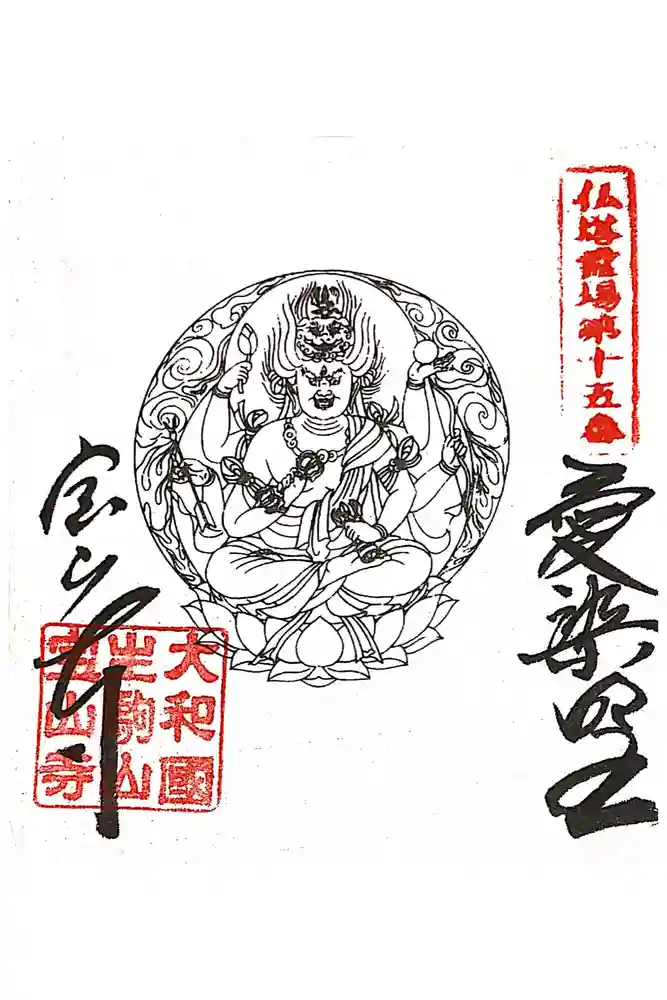 仏塔霊場第十五番
愛染明王
大和國
生駒山
宝山寺
宝山寺